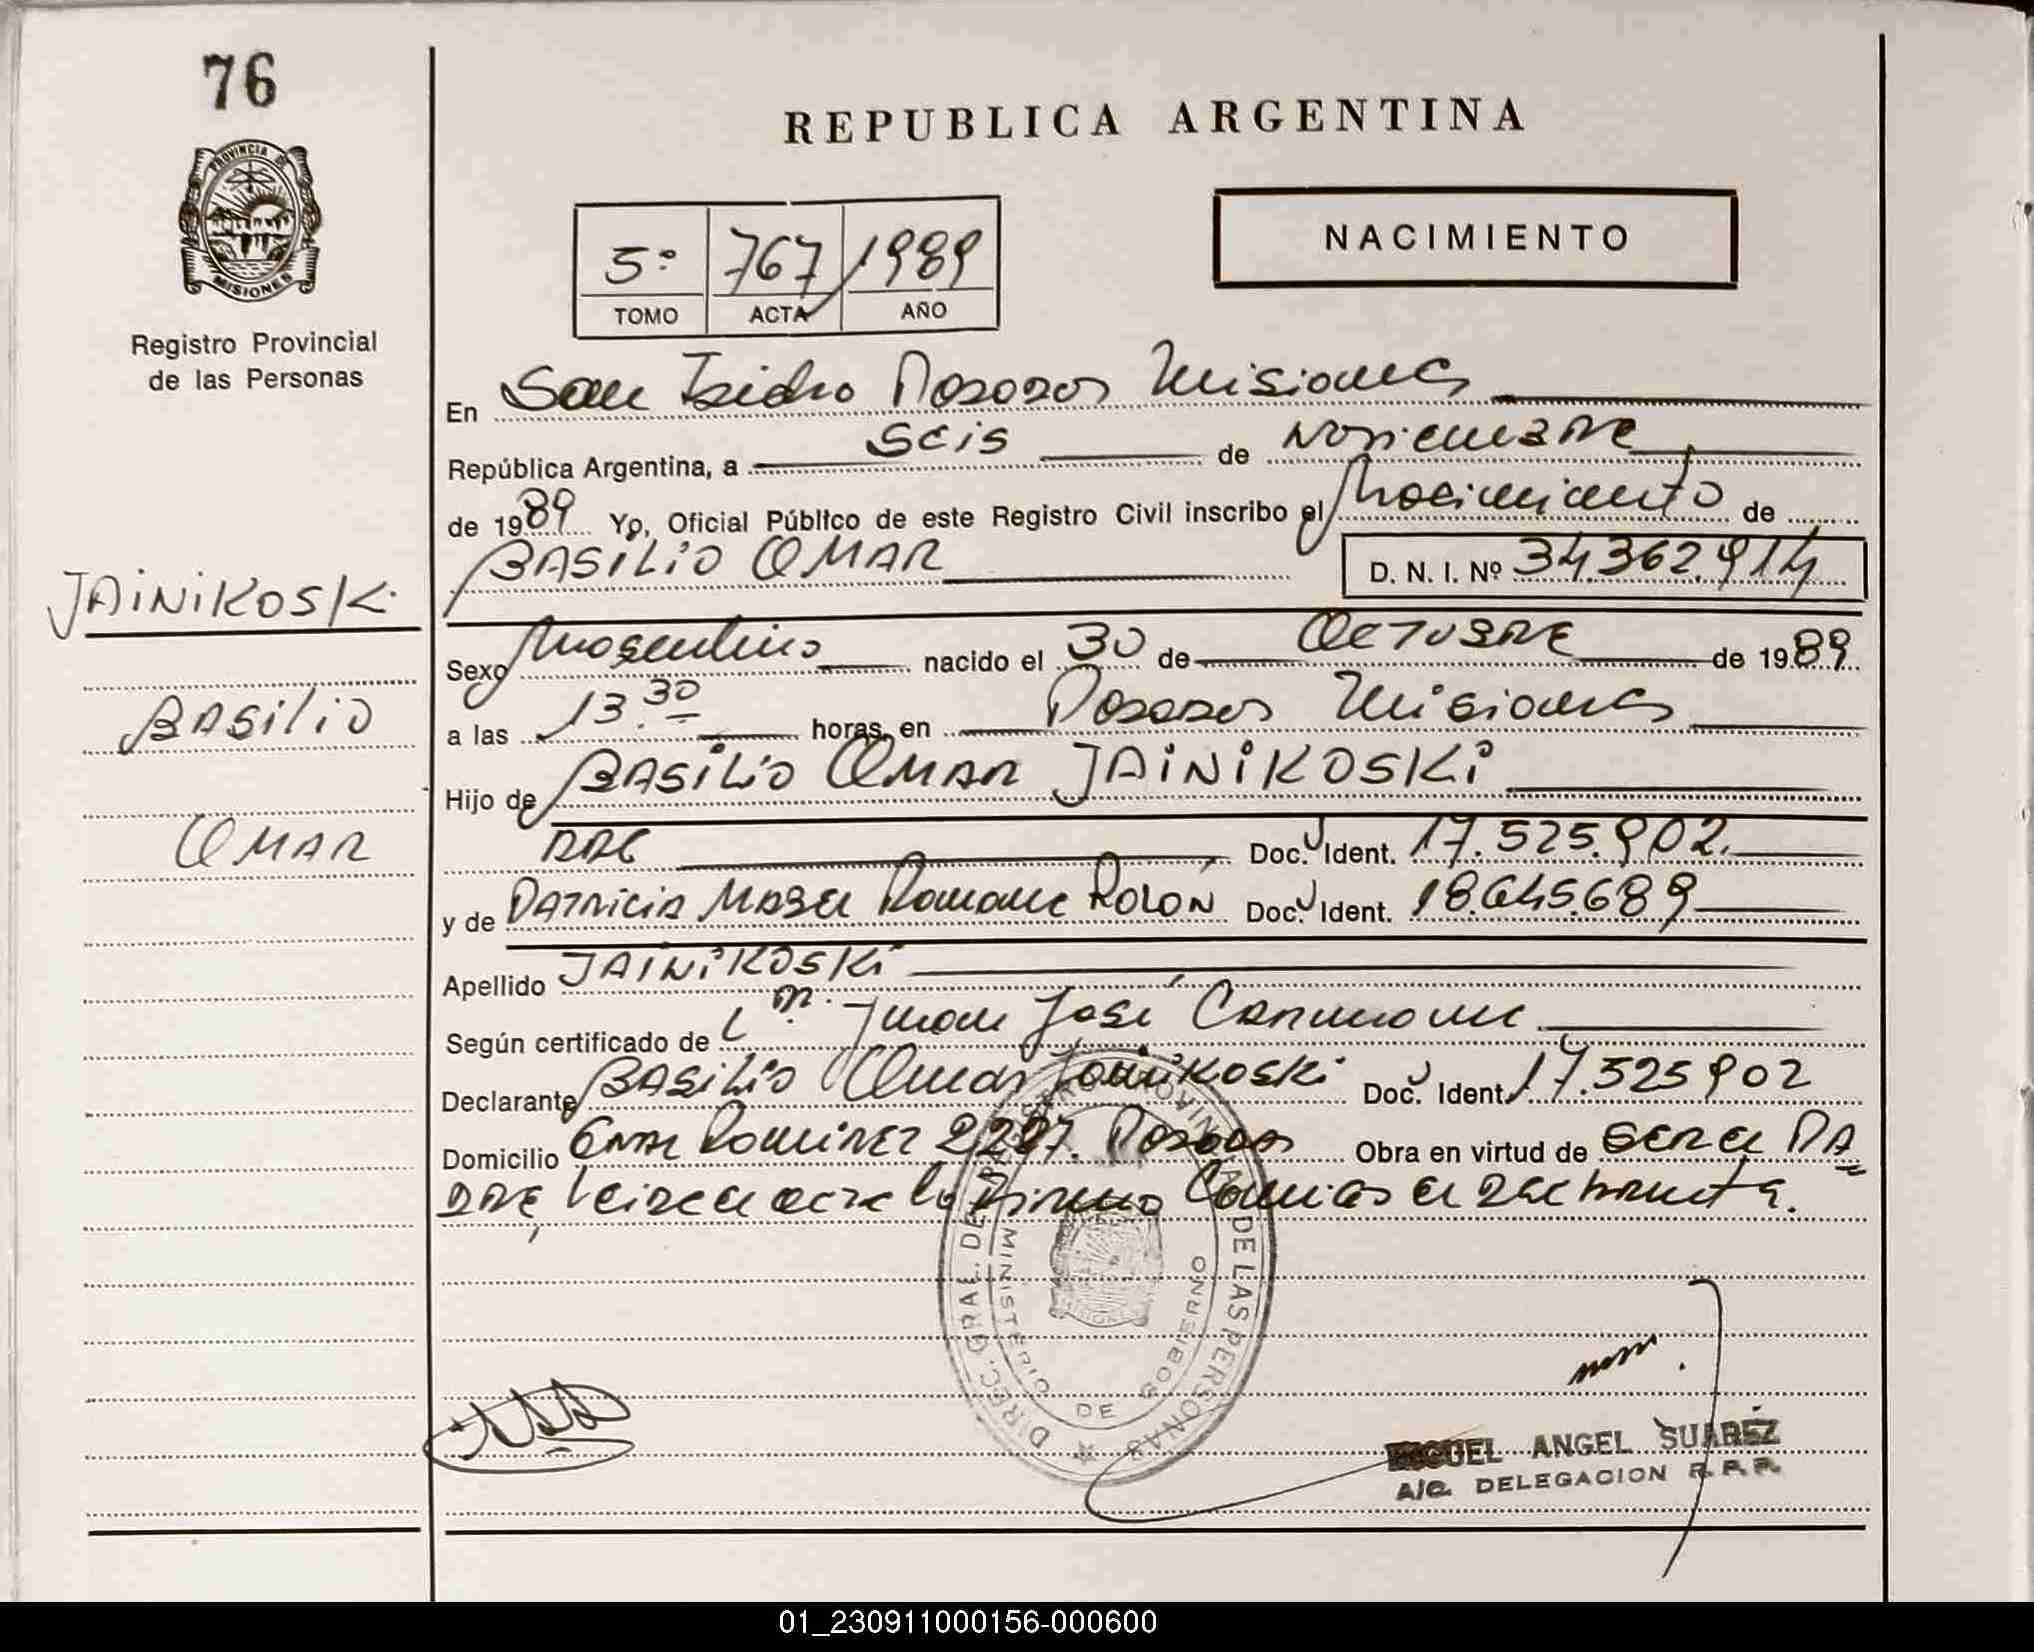 76
REPUBLICA ARGENTINA
PROVINCIA DE
MISIONES
Registro Provincial
de las Personas
5º 767 1989
TOMO ACTA AÑO
NACIMIENTO
En San Isidro Posadas Misiones
República Argentina, a seis de Noviembre
de 1989 Yo, Oficial Público de este Registro Civil inscribo el Nacimiento de
BASILIO OMAR D. N. I. Nº 34.362.914
JAINIKOSKI
Sexo Masculino nacido el 30 de OCTUBRE de 1989
a las 13.30 horas, en Posadas Misiones
BASILIO
Hijo de BASILIO OMAR JAINIKOSKI
OMAR
ARG Doc. Ident. 17.525.902.
y de PATRICIA MABEL Romane ROLÓN Doc. Ident. 18.645.689
Apellido JAINIKOSKI
Según certificado de Dr. Juan José
Declarante BASILIO Omar Jainikoski Doc. Ident. 17.525902
Domicilio Gral Ramirez 2227. Posadas Obra en virtud de SER EL PA=
DRE, leida el acta la Firma Conmigo el declarante.
DIREC. GRAL. DEL REG. PROVINCIAL DE LAS PERSONAS
MINISTERIO DE GOBIERNO
MIGUEL ANGEL SUAREZ
A/C. DELEGACION R.P.P.
01_230911000156-000600